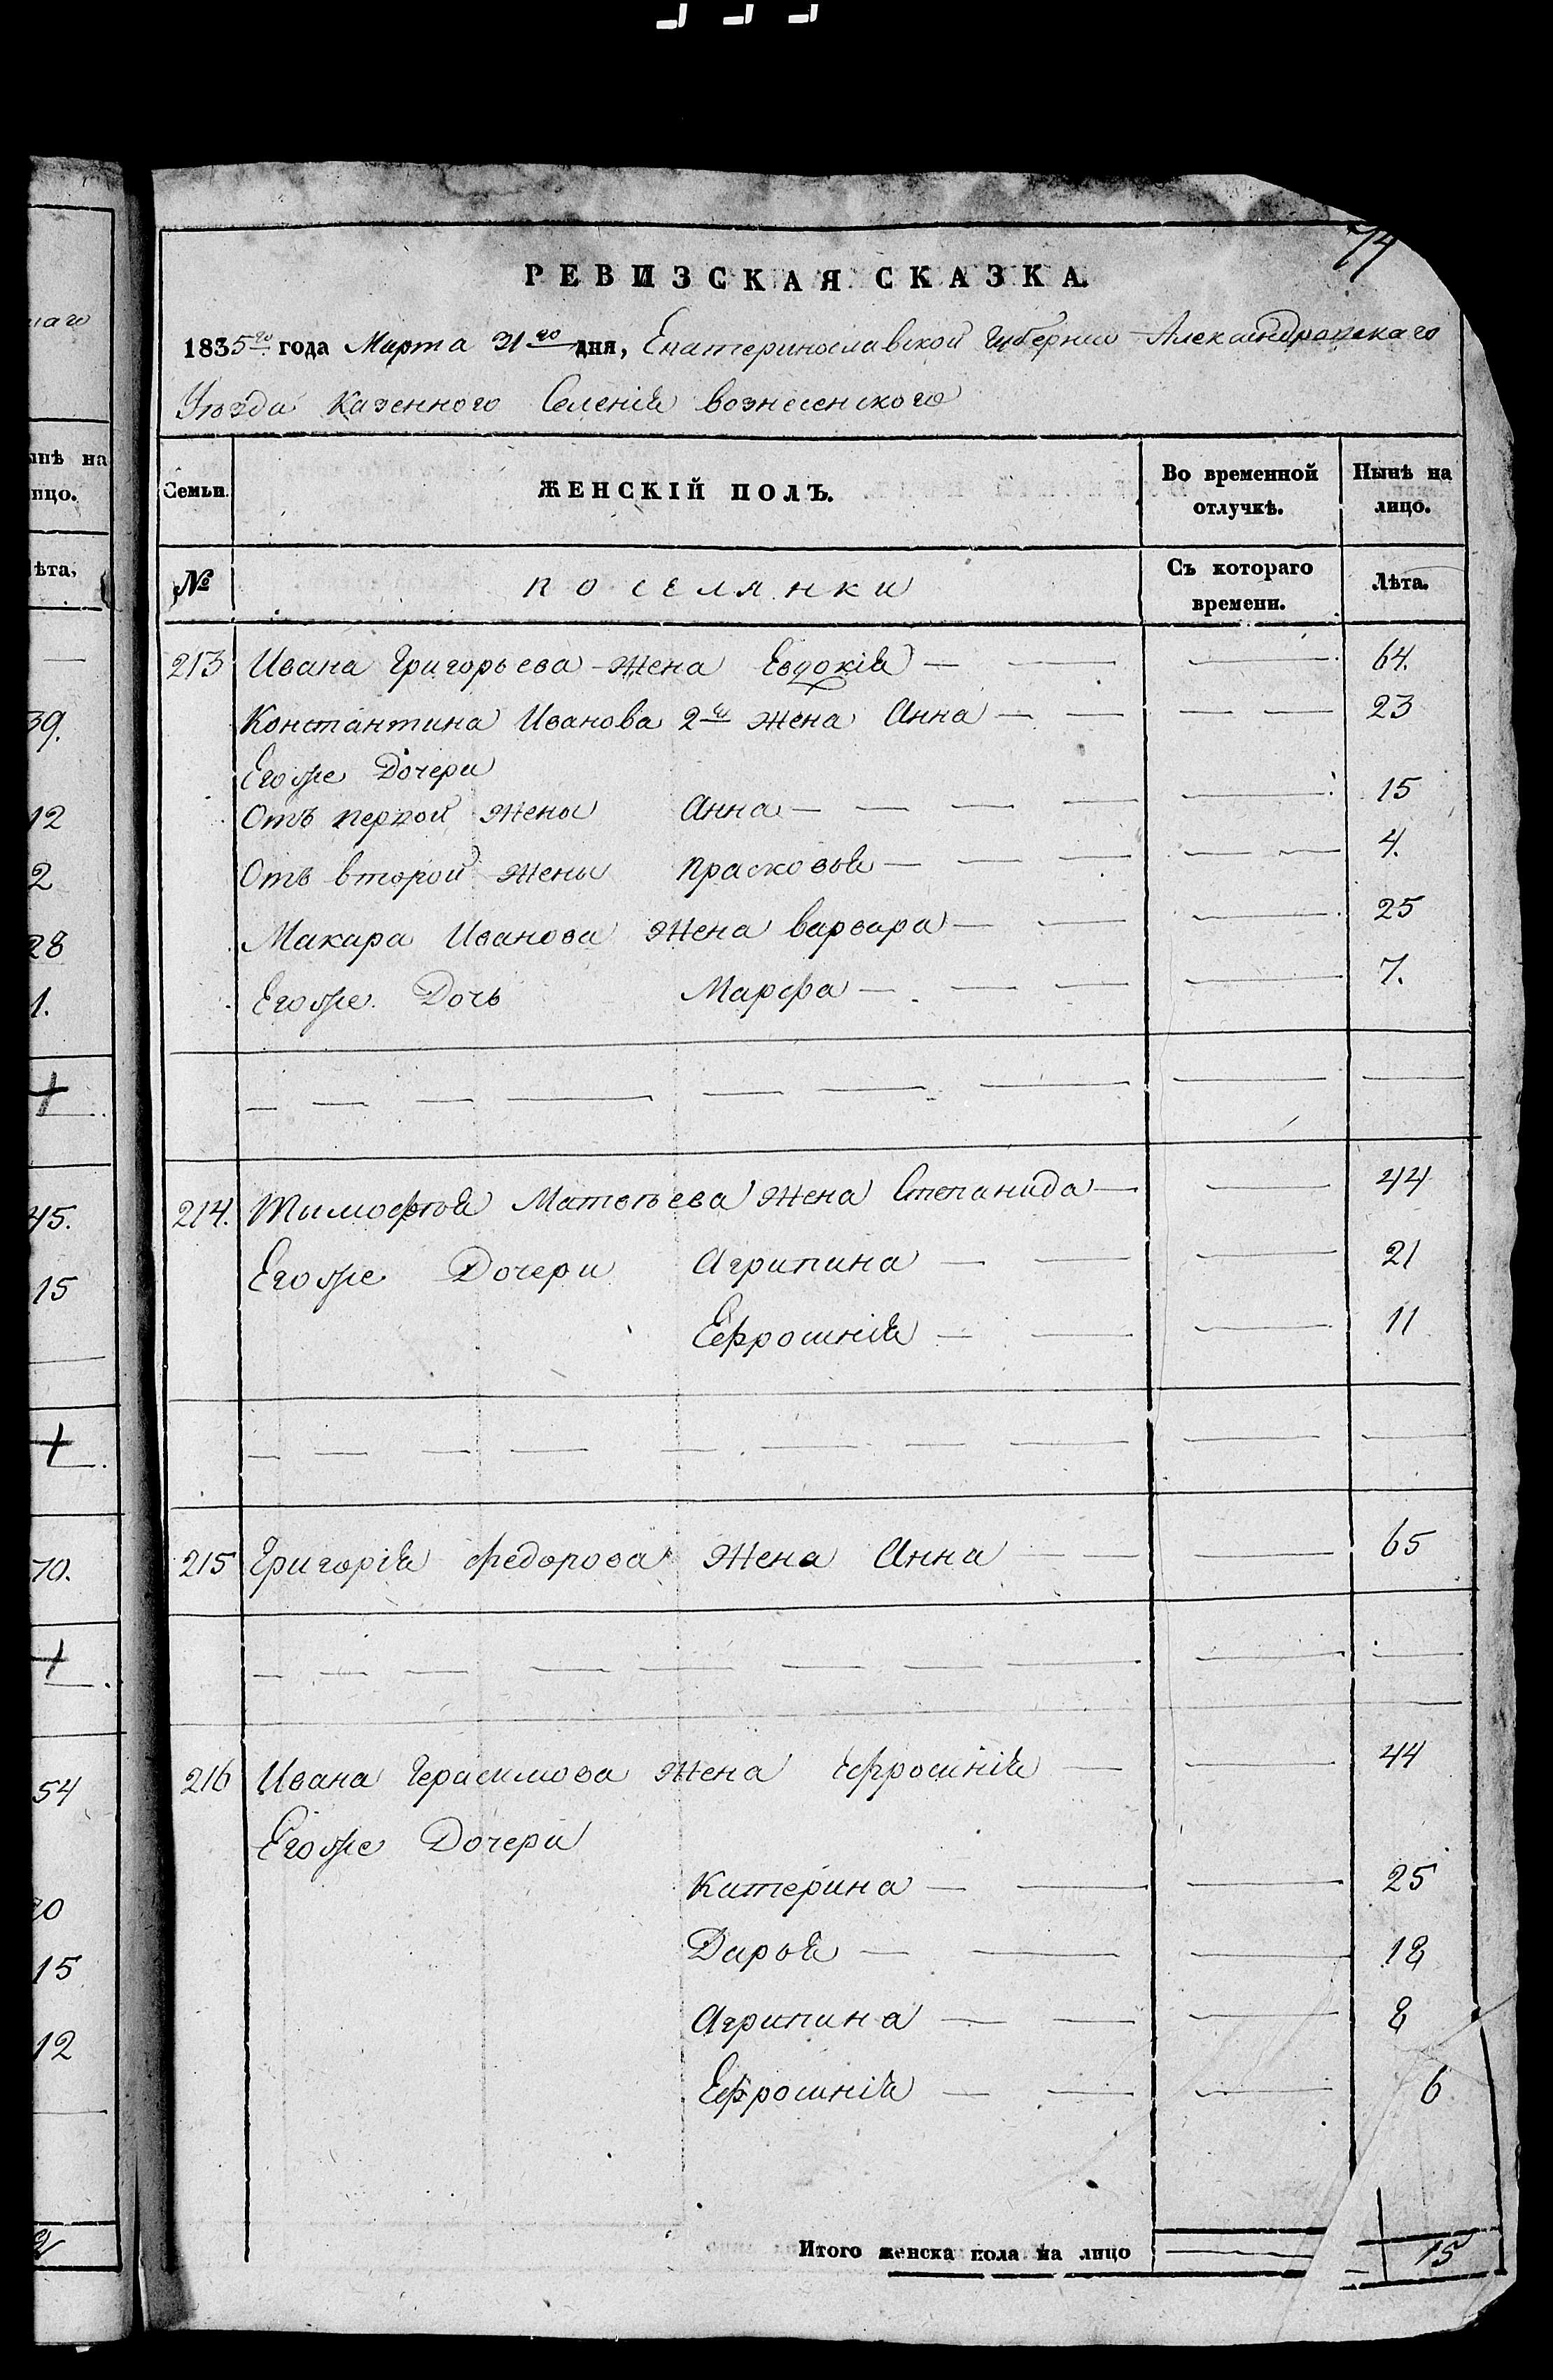 74
РЕВИЗСКАЯ СКАЗКА.
1835го года Марта 31го дня, Екатеринославской Губернии Александровскаго
Уезда Казенного Селенія вознесенского
Семьи. ЖЕНСКІЙ ПОЛЪ. Во временной отлучкѣ. Нынѣ на лицо.
№ поселянки Съ котораго времени. Лѣта.
213 Ивана Григорьева Жена Евдокія 64.
Константина Иванова 2я Жена Анна 23
Егоже Дочери
Отъ первой Жены Анна 15
Отъ второй Жены Прасковья 4.
Макара Иванова Жена варвара 25
Егоже Дочь Марфа 7.
214. Тимофѣя Матвѣева Жена Степанида 44
Егоже Дочери Агрипина 21
Ефросинія 11
215 Григорія Федорова Жена Анна 65
216 Ивана Герасимова Жена Ефросинія 44
Егоже Дочери
Катерина 25
Дарья 18
Агрипина 8
Ефросинія 6
Итого женска пола на лицо 15
наго
нынѣ на
лицо.
Лѣта,
39.
12
2
28
1.
45.
15
70.
54
20
15
12